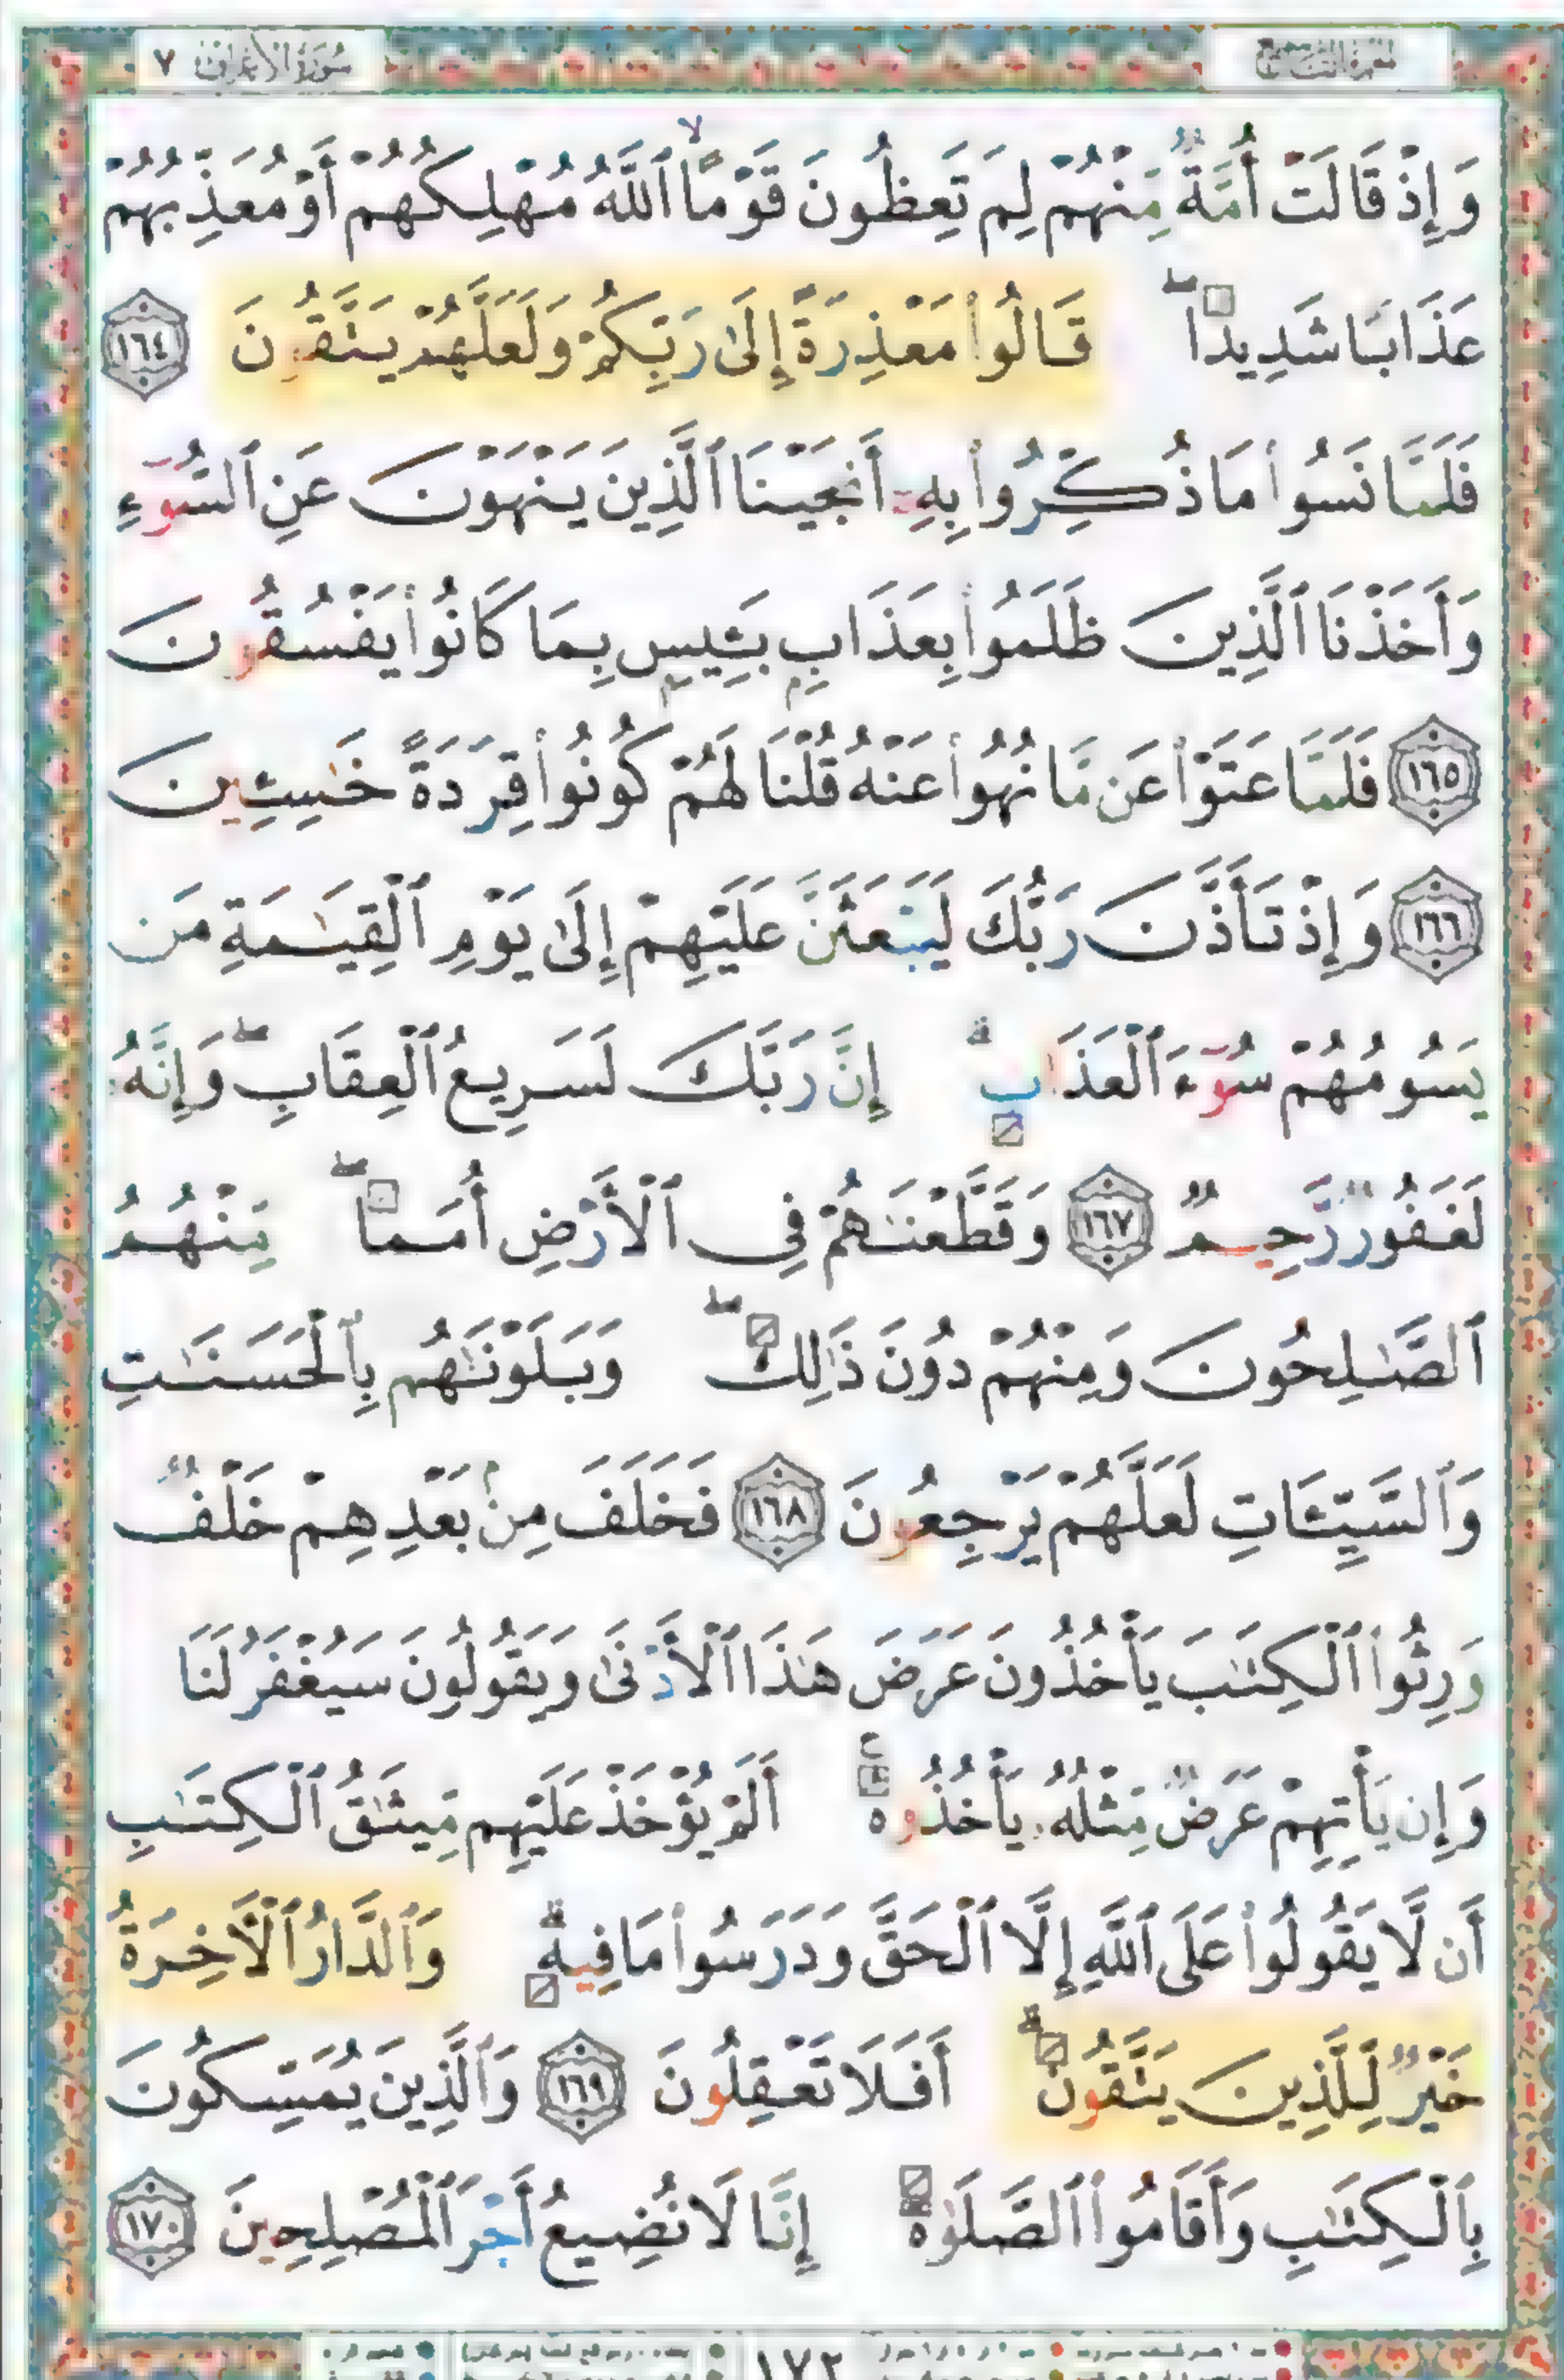 سُورَةُ الأَعْرَاف ٧
وَإِذْ قَالَتْ أُمَّةٌ مِّنْهُمْ لِمَ تَعِظُونَ قَوْمًا ۙ ٱللَّهُ مُهْلِكُهُمْ أَوْ مُعَذِّبُهُمْ
عَذَابًا شَدِيدًا ۖ قَالُوا۟ مَعْذِرَةً إِلَىٰ رَبِّكُمْ وَلَعَلَّهُمْ يَتَّقُونَ ١٦٤
فَلَمَّا نَسُوا۟ مَا ذُكِّرُوا۟ بِهِۦٓ أَنجَيْنَا ٱلَّذِينَ يَنْهَوْنَ عَنِ ٱلسُّوٓءِ
وَأَخَذْنَا ٱلَّذِينَ ظَلَمُوا۟ بِعَذَابٍۭ بَـِٔيسٍۭ بِمَا كَانُوا۟ يَفْسُقُونَ
١٦٥ فَلَمَّا عَتَوْا۟ عَن مَّا نُهُوا۟ عَنْهُ قُلْنَا لَهُمْ كُونُوا۟ قِرَدَةً خَـٰسِـِٔينَ
١٦٦ وَإِذْ تَأَذَّنَ رَبُّكَ لَيَبْعَثَنَّ عَلَيْهِمْ إِلَىٰ يَوْمِ ٱلْقِيَـٰمَةِ مَن
يَسُومُهُمْ سُوٓءَ ٱلْعَذَابِ ۗ إِنَّ رَبَّكَ لَسَرِيعُ ٱلْعِقَابِ ۖ وَإِنَّهُۥ
لَغَفُورٌ رَّحِيمٌ ١٦٧ وَقَطَّعْنَـٰهُمْ فِى ٱلْأَرْضِ أُمَمًا ۖ مِّنْهُمُ
ٱلصَّـٰلِحُونَ وَمِنْهُمْ دُونَ ذَٰلِكَ ۖ وَبَلَوْنَـٰهُم بِٱلْحَسَنَـٰتِ
وَٱلسَّيِّـَٔاتِ لَعَلَّهُمْ يَرْجِعُونَ ١٦٨ فَخَلَفَ مِنۢ بَعْدِهِمْ خَلْفٌ
وَرِثُوا۟ ٱلْكِتَـٰبَ يَأْخُذُونَ عَرَضَ هَـٰذَا ٱلْأَدْنَىٰ وَيَقُولُونَ سَيُغْفَرُ لَنَا
وَإِن يَأْتِهِمْ عَرَضٌ مِّثْلُهُۥ يَأْخُذُوهُ ۚ أَلَمْ يُؤْخَذْ عَلَيْهِم مِّيثَـٰقُ ٱلْكِتَـٰبِ
أَن لَّا يَقُولُوا۟ عَلَى ٱللَّهِ إِلَّا ٱلْحَقَّ وَدَرَسُوا۟ مَا فِيهِ ۗ وَٱلدَّارُ ٱلْـَٔاخِرَةُ
خَيْرٌ لِّلَّذِينَ يَتَّقُونَ ۗ أَفَلَا تَعْقِلُونَ ١٦٩ وَٱلَّذِينَ يُمَسِّكُونَ
بِٱلْكِتَـٰبِ وَأَقَامُوا۟ ٱلصَّلَوٰةَ إِنَّا لَا نُضِيعُ أَجْرَ ٱلْمُصْلِحِينَ ١٧٠
١٧٢